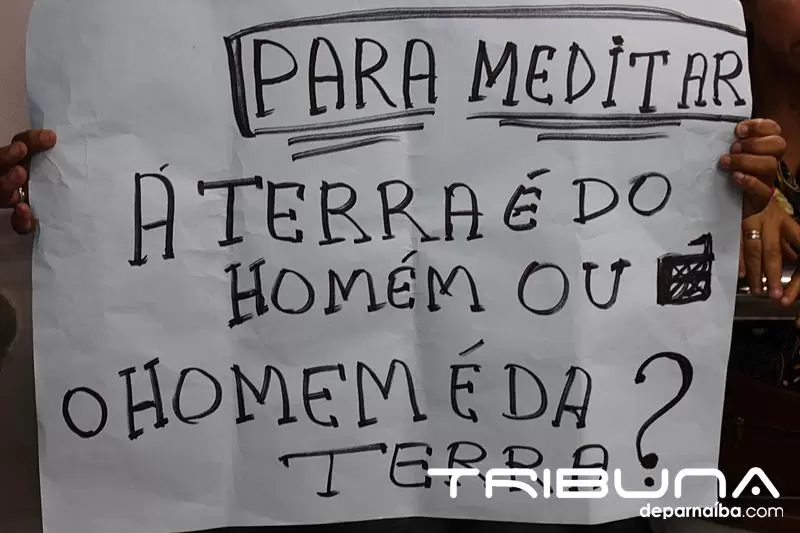 PARA MEDITAR
Á TERRA É DO
HOMÉM OU
O HOMEM É DA
TERRA?
TRIBUNA
deparnaíba.com